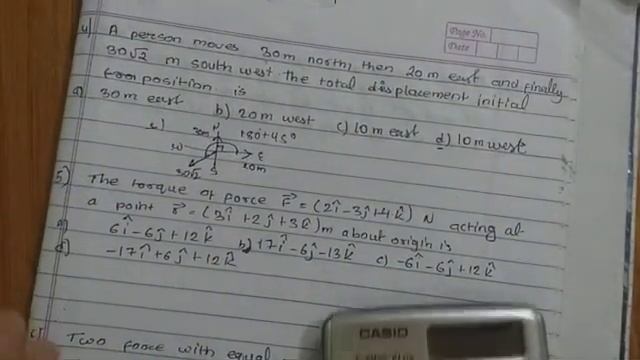 Page No.
Date
4) A person moves 30m north, then 20m east and finally
30√2 m south west the total displacement initial
from position is
a) 30m east b) 20m west c) 10m east d) 10m west
N
30m 180+45°
W E
20m
30√2 S
5) The torque of force F⃗ = (2î-3ĵ+4k̂) N acting at
a point r⃗ = (3î+2ĵ+3k̂)m about origin is
a) 6î-6ĵ+12k̂ b) 17î-6ĵ-13k̂ c) -6î-6ĵ+12k̂
d) -17î+6ĵ+12k̂
Two force with equal
CASIO